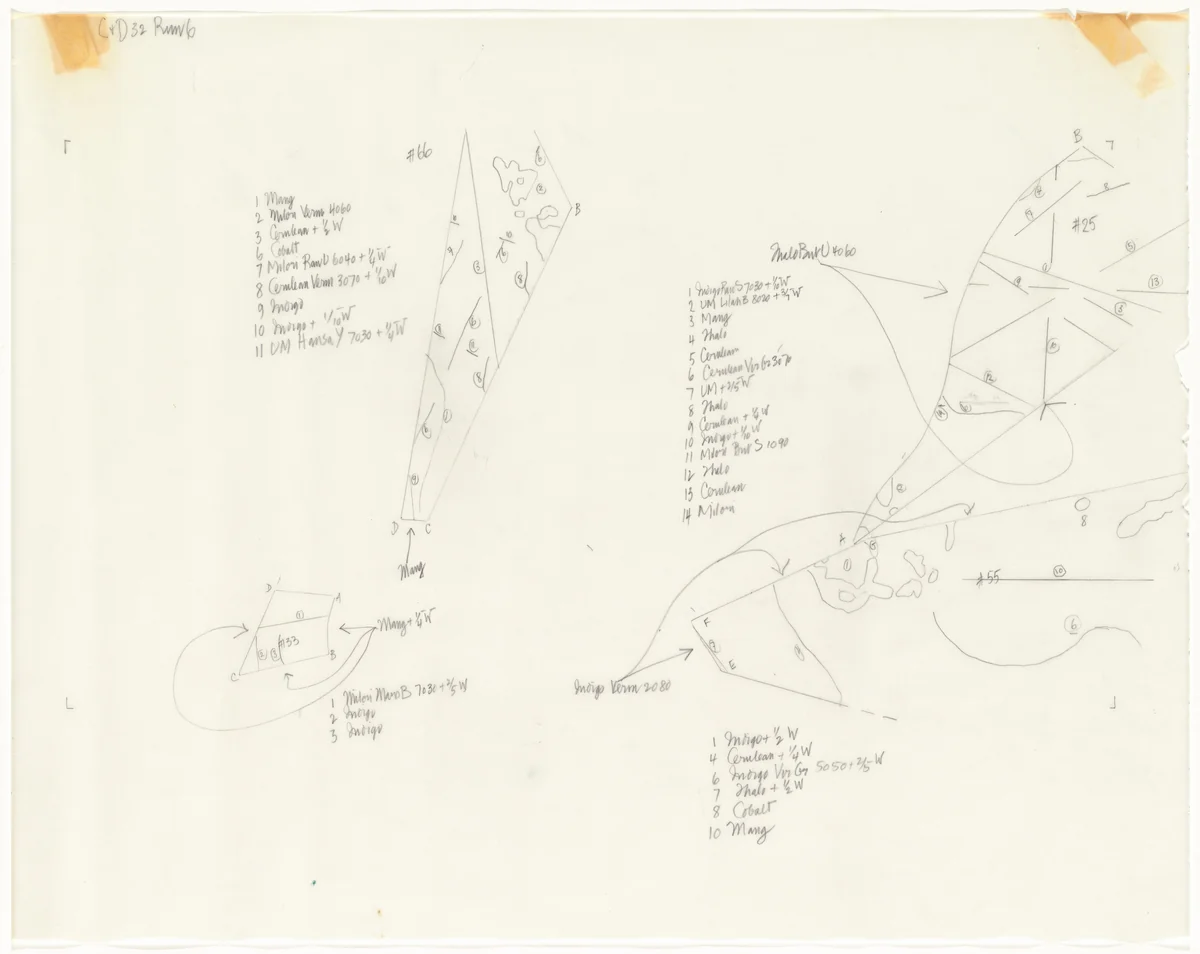 C+D 32 Run 6
#66
1 Mang
2 Milori Verm 4060
3 Cerulean + 1/2 W
6 Cobalt
7 Milori RawU 6040 + 1/4 W
8 Cerulean Verm 3070 + 1/10 W
9 Indigo
10 Indigo + 1/10 W
11 UM Hansa Y 7030 + 1/4 W
B
D C
Mang
D
A
#33
B
C
Mang + 1/4 W
1 Milori MarsB 7030 + 2/5 W
2 Indigo
3 Indigo
B
7
#25
Thalo BntU 4060
1 Indigo RawS 7030 + 1/10 W
2 UM LilanB 8020 + 3/4 W
3 Mang
4 Thalo
5 Cerulean
6 Cerulean VirGr 3070
7 UM + 2/5 W
8 Thalo
9 Cerulean + 1/4 W
10 Indigo + 1/10 W
11 Milori Bnt S 1090
12 Thalo
13 Cerulean
14 Milori
A
8
#55
10
6
F
E
Indigo Verm 2080
1 Indigo + 1/2 W
4 Cerulean + 1/4 W
6 Indigo Vir Gr 5050 + 2/5 W
7 Thalo + 1/2 W
8 Cobalt
10 Mang